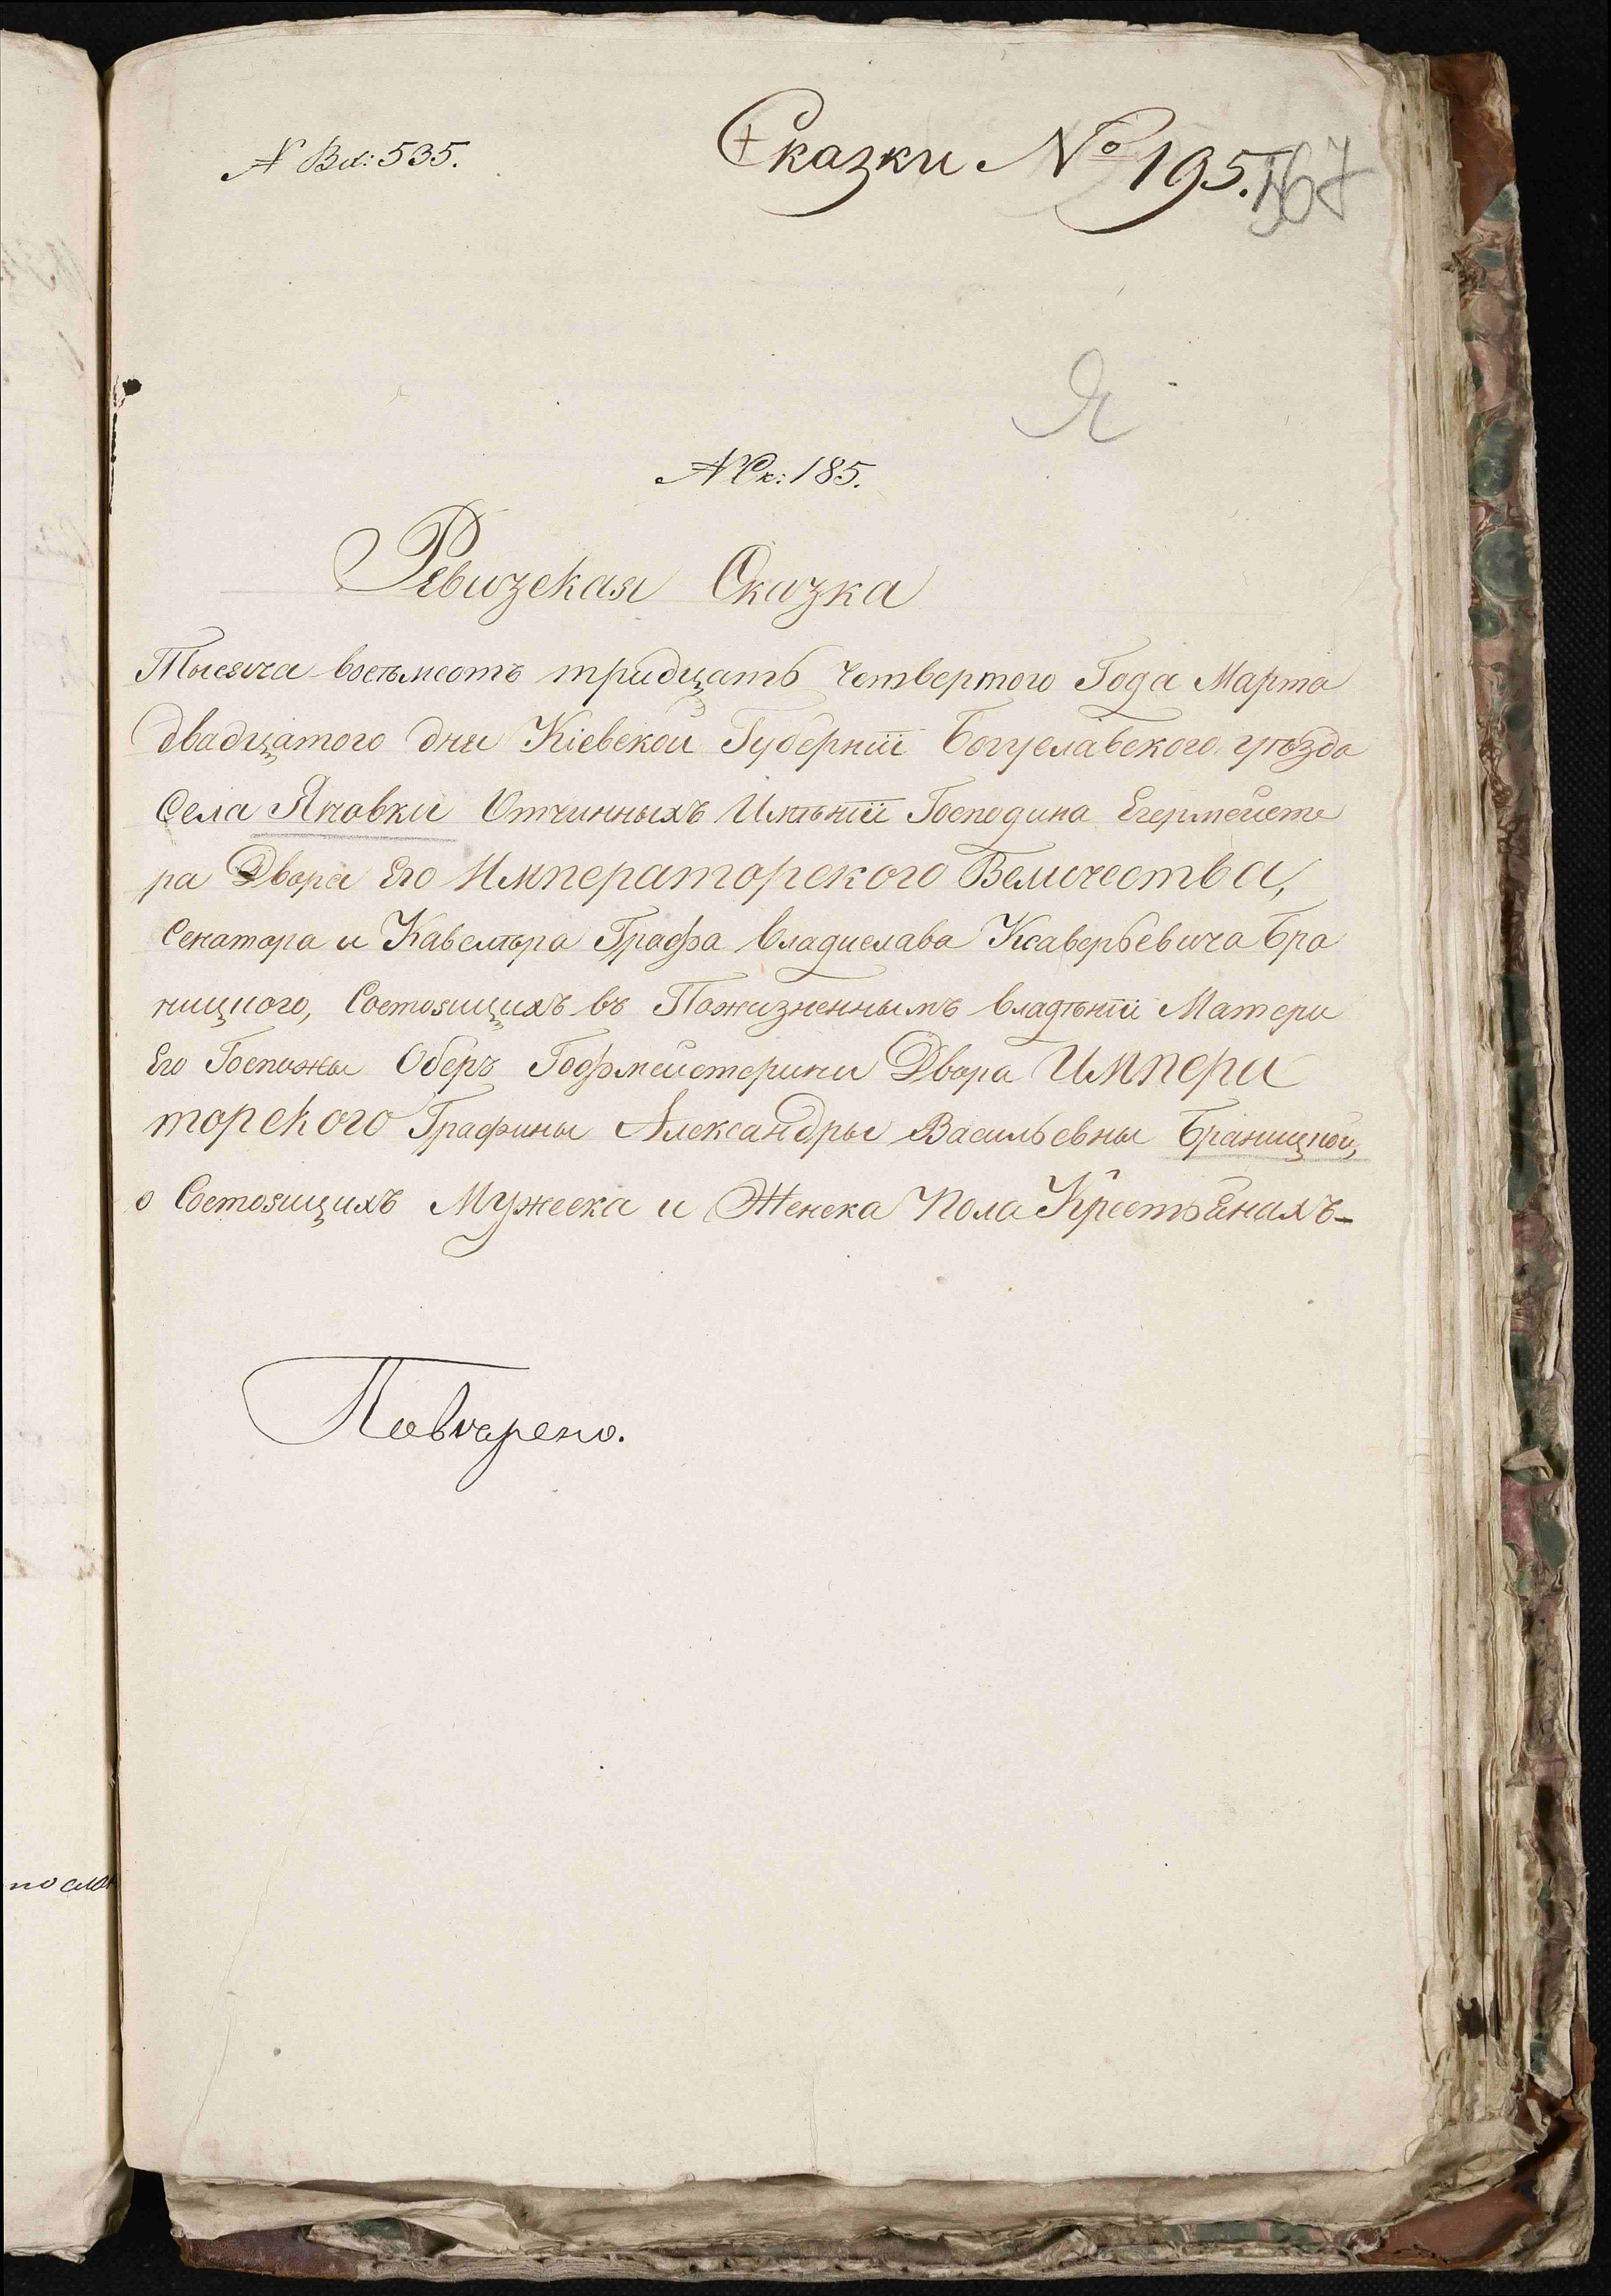 N Вх: 535.
Сказки № 195.
567
Я
N Ск: 185.
Ревизская Сказка
Тысяча восьмсотъ тридцать четвертого Года Марта
двадцатого дня Кіевской Губерніи Богуславского уѣзда
Села Яновки Отчинныхъ Имѣній Господина Егермейсте
ра Двора Его Императорского Величества,
Сенатора и Кавелѣра Графа Владислава Ксаверьевича Бра
ницкого, Состоящихъ въ Пожизненнымъ владѣніи Матери
Его Госпожи Оберъ Гофмейстерини Двора Импера
торского Графины Александры Васильевны Браницкой,
о Состоящихъ Мужеска и Женска Пола Крестьянахъ-
по сло